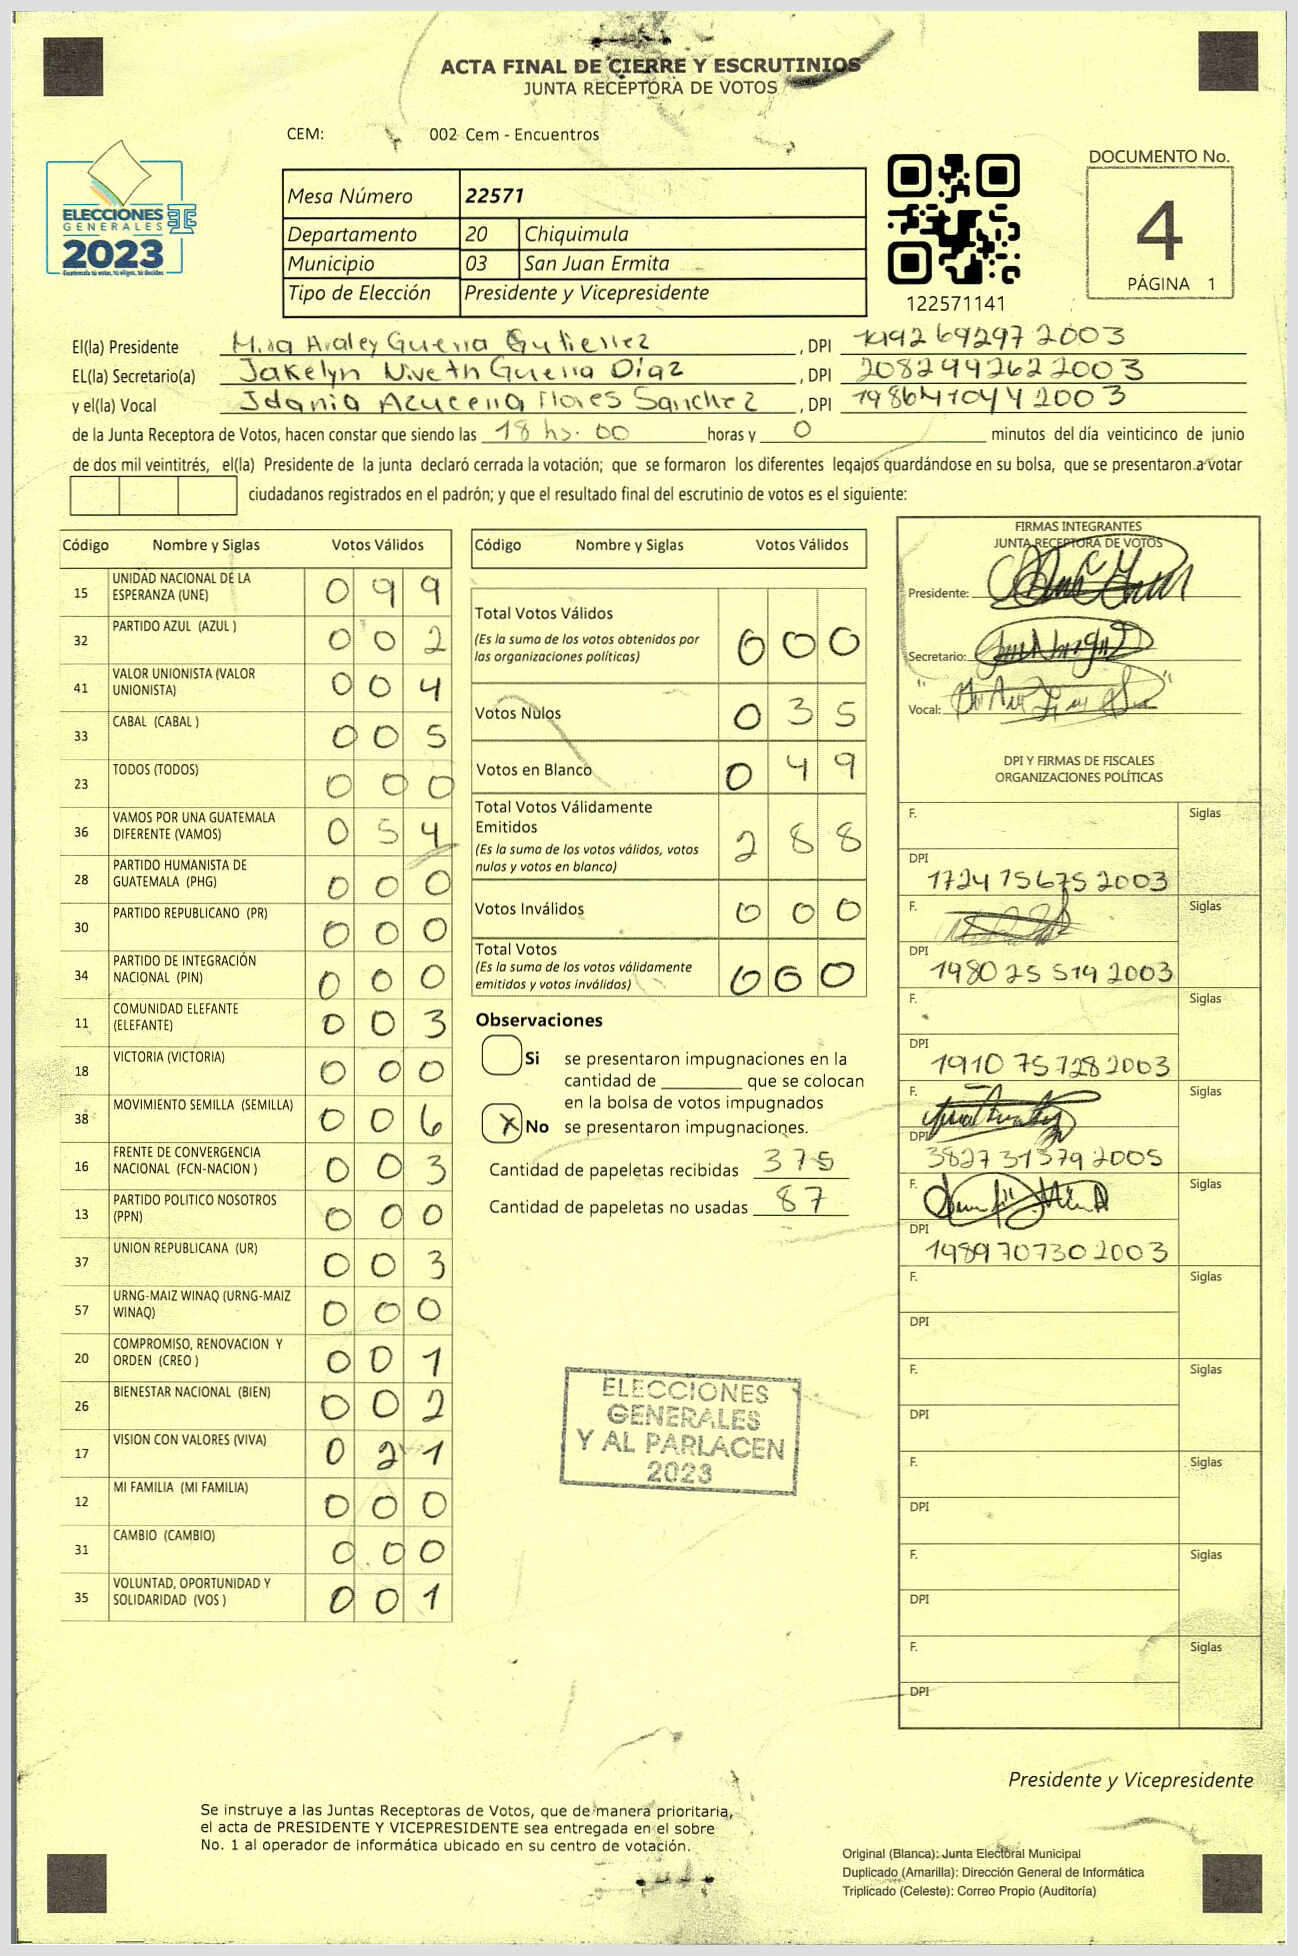 ACTA FINAL DE CIERRE Y ESCRUTINIOS
JUNTA RECEPTORA DE VOTOS
CEM: 002 Cem - Encuentros
ELECCIONES
GENERALES
2023
Guatemala tú votas, tú eliges, tú decides
Mesa Número 22571
Departamento 20 Chiquimula
Municipio 03 San Juan Ermita
Tipo de Elección Presidente y Vicepresidente
122571141
DOCUMENTO No.
4
PÁGINA 1
El(la) Presidente Guerra Gutierrez, DPI 2003
EL(la) Secretario(a) Jakelyn Niveth Guerra Díaz, DPI 2082992622003
y el(la) Vocal Idania Azucena Flores Sanchez, DPI 2003
de la Junta Receptora de Votos, hacen constar que siendo las 18 hs. 00 horas y 0 minutos del día veinticinco de junio
de dos mil veintitrés, el(la) Presidente de la junta declaró cerrada la votación; que se formaron los diferentes legajos guardándose en su bolsa, que se presentaron a votar
ciudadanos registrados en el padrón; y que el resultado final del escrutinio de votos es el siguiente:
Código Nombre y Siglas Votos Válidos
15 UNIDAD NACIONAL DE LA ESPERANZA (UNE) 099
32 PARTIDO AZUL (AZUL ) 002
41 VALOR UNIONISTA (VALOR UNIONISTA) 004
33 CABAL (CABAL ) 005
23 TODOS (TODOS) 000
36 VAMOS POR UNA GUATEMALA DIFERENTE (VAMOS) 054
28 PARTIDO HUMANISTA DE GUATEMALA (PHG) 000
30 PARTIDO REPUBLICANO (PR) 000
34 PARTIDO DE INTEGRACIÓN NACIONAL (PIN) 000
11 COMUNIDAD ELEFANTE (ELEFANTE) 003
18 VICTORIA (VICTORIA) 000
38 MOVIMIENTO SEMILLA (SEMILLA) 006
16 FRENTE DE CONVERGENCIA NACIONAL (FCN-NACION ) 003
13 PARTIDO POLITICO NOSOTROS (PPN) 000
37 UNION REPUBLICANA (UR) 003
57 URNG-MAIZ WINAQ (URNG-MAIZ WINAQ) 000
20 COMPROMISO, RENOVACION Y ORDEN (CREO ) 001
26 BIENESTAR NACIONAL (BIEN) 002
17 VISION CON VALORES (VIVA) 021
12 MI FAMILIA (MI FAMILIA) 000
31 CAMBIO (CAMBIO) 000
35 VOLUNTAD, OPORTUNIDAD Y SOLIDARIDAD (VOS ) 001
Código Nombre y Siglas Votos Válidos
Total Votos Válidos 000
(Es la suma de los votos obtenidos por
las organizaciones políticas)
Votos Nulos 035
Votos en Blanco 049
Total Votos Válidamente
Emitidos 288
(Es la suma de los votos válidos, votos
nulos y votos en blanco)
Votos Inválidos 000
Total Votos 000
(Es la suma de los votos válidamente
emitidos y votos inválidos)
Observaciones
Si se presentaron impugnaciones en la
cantidad de ________ que se colocan
en la bolsa de votos impugnados
X No se presentaron impugnaciones.
Cantidad de papeletas recibidas 375
Cantidad de papeletas no usadas 87
ELECCIONES
GENERALES
Y AL PARLACEN
2023
FIRMAS INTEGRANTES
JUNTA RECEPTORA DE VOTOS
Presidente:
Secretario:
Vocal:
DPI Y FIRMAS DE FISCALES
ORGANIZACIONES POLÍTICAS
F. Siglas
DPI 1724756752003
F. Siglas
DPI 1980255192003
F. Siglas
DPI 1910757282003
F. Siglas
DPI 3827313792005
F. Siglas
DPI 1989707302003
F. Siglas
DPI
F. Siglas
DPI
F. Siglas
DPI
F. Siglas
DPI
F. Siglas
DPI
Presidente y Vicepresidente
Se instruye a las Juntas Receptoras de Votos, que de manera prioritaria,
el acta de PRESIDENTE Y VICEPRESIDENTE sea entregada en el sobre
No. 1 al operador de informática ubicado en su centro de votación.
Original (Blanca): Junta Electoral Municipal
Duplicado (Amarilla): Dirección General de Informática
Triplicado (Celeste): Correo Propio (Auditoría)